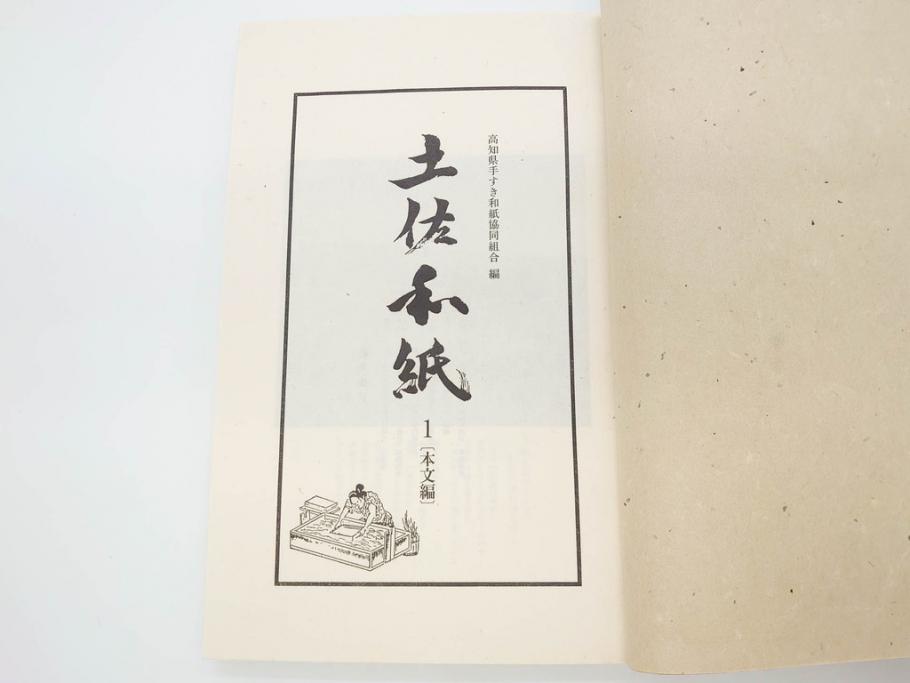 高知県手すき和紙協同組合 編
土佐和紙
1[本文編]